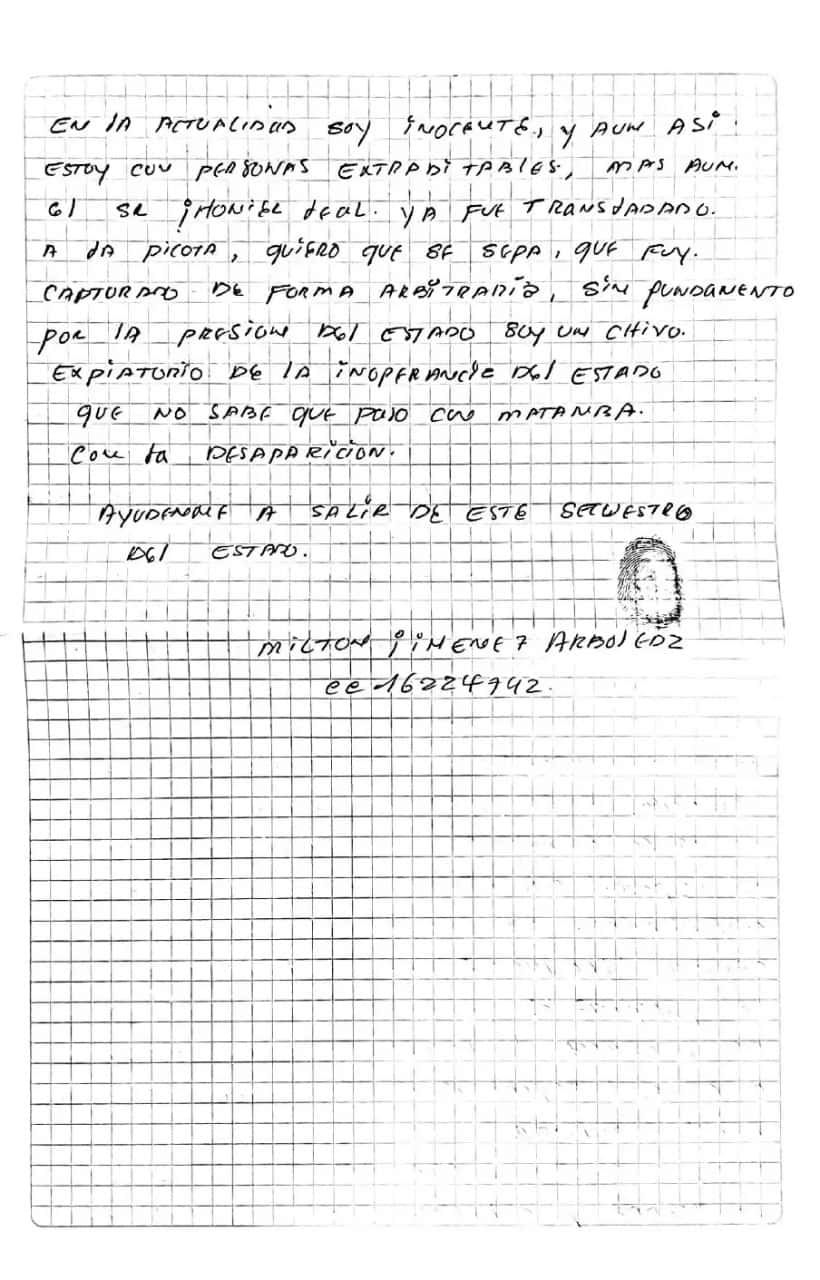 EN LA ACTUALIDAD SOY INOCENTE, Y AUN ASI
ESTOY CON PERSONAS EXTRADITABLES, MAS AUN.
El SR JHONIER LEAL. YA FUE TRANSLADADO.
A LA PICOTA, QUIERO QUE SE SEPA, QUE FUY.
CAPTURADO DE FORMA ARBITRARIA, SIN FUNDAMENTO
POR LA PRESION DEl ESTADO SOY UN CHIVO.
EXPIATORIO DE LA INOPERANCIE DEl ESTADO
QUE NO SABE QUE PASO CON MATAMBA.
Con la DESAPARICION.
AYUDENME A SALIR DE ESTE SECUESTRO
DEl ESTADO.
MILTON JIMENEZ ARBOLEDA
cc 16224942.